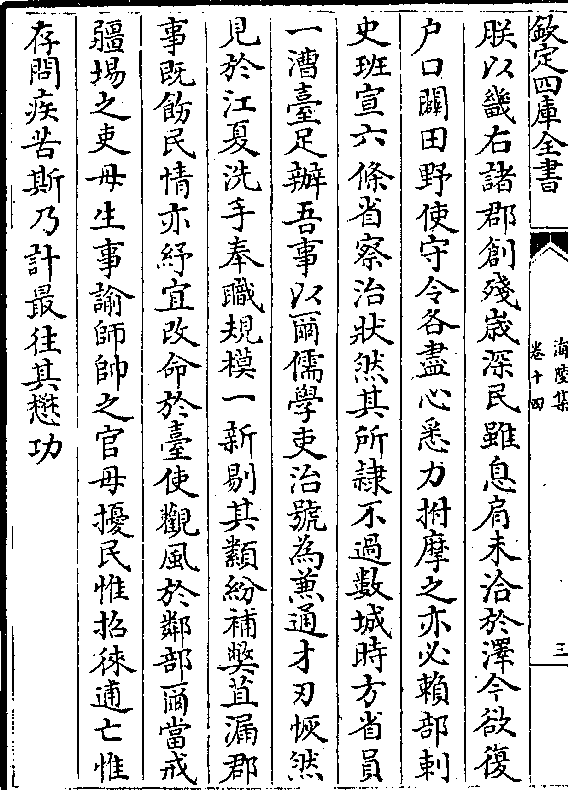 欽定四庫全書
海陵集
卷十四
三
朕以畿右諸郡創殘歳深民雖息肩未洽於澤今欲復
户口闢田野使守令各盡心悉力拊摩之亦必賴部刺
史班宣六條省察治狀然其所隷不過數城時方省員
一漕臺足辦吾事以爾儒學吏治號為兼通才刃恢然
見於江夏洗手奉職規模一新剔其纇紛補獘苴漏郡
事既飭民情亦紓宜改命於臺使觀風於鄰部爾當戒
疆埸之吏毋生事諭師帥之官毋擾民惟招徠逋亡惟
存問疾苦斯乃計最往其懋功